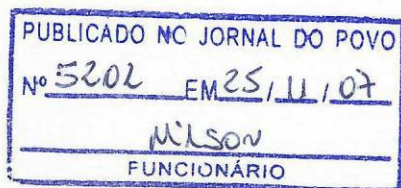 PUBLICADO NO JORNAL DO POVO
Nº 5202 EM 25/11/07
Milson
FUNCIONÁRIO